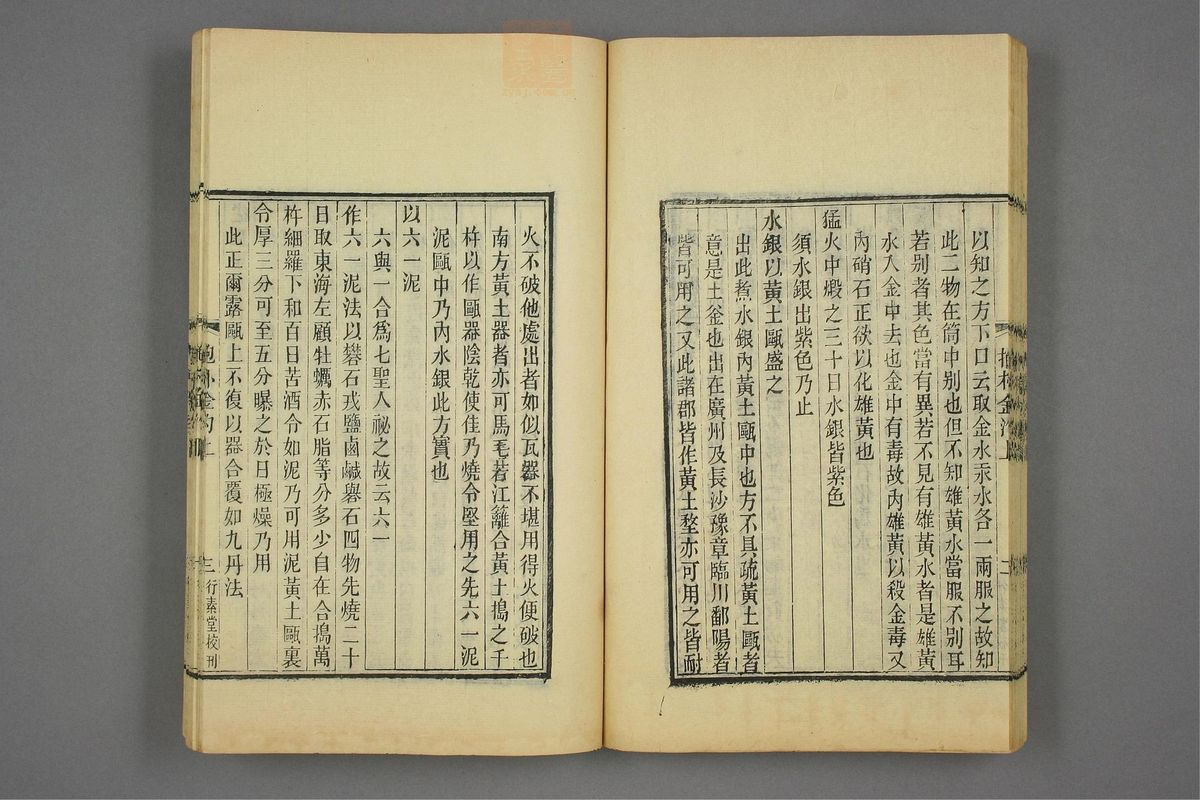 以知之方下口云取金水汞水各一兩服之故知
此二物在筒中别也但不知雄黃水當服不别耳
若别者其色當有異若不見有雄黃水者是雄黃
水入金中去也金中有毒故內雄黃以殺金毒又
內硝石正欲以化雄黃也
猛火中煅之三十日水銀皆紫色
須水銀出紫色乃止
水銀以黃土甌盛之
出此煑水銀內黃土甌中也方不具疏黃土甌者
意是土釜也出在廣州及長沙豫章臨川鄱陽者
皆可用之又此諸郡皆作黃土堥亦可用之皆耐
二
火不破他處出者如似瓦器不堪用得火便破也
南方黃土器者亦可馬毛若江籬合黃土搗之千
杵以作甌器陰乾使佳乃燒令堅用之先六一泥
泥甌中乃內水銀此方實也
以六一泥
六與一合爲七聖人祕之故云六一
作六一泥法以礬石戎鹽鹵鹹礜石四物先燒二十
日取東海左顧牡蠣赤石脂等分多少自在合搗萬
杵細羅下和百日苦酒令如泥乃可用泥黃土甌裏
令厚三分可至五分曝之於日極燥乃用
此正爾露甌上不復以器合覆如九丹法
三
行素堂校刊